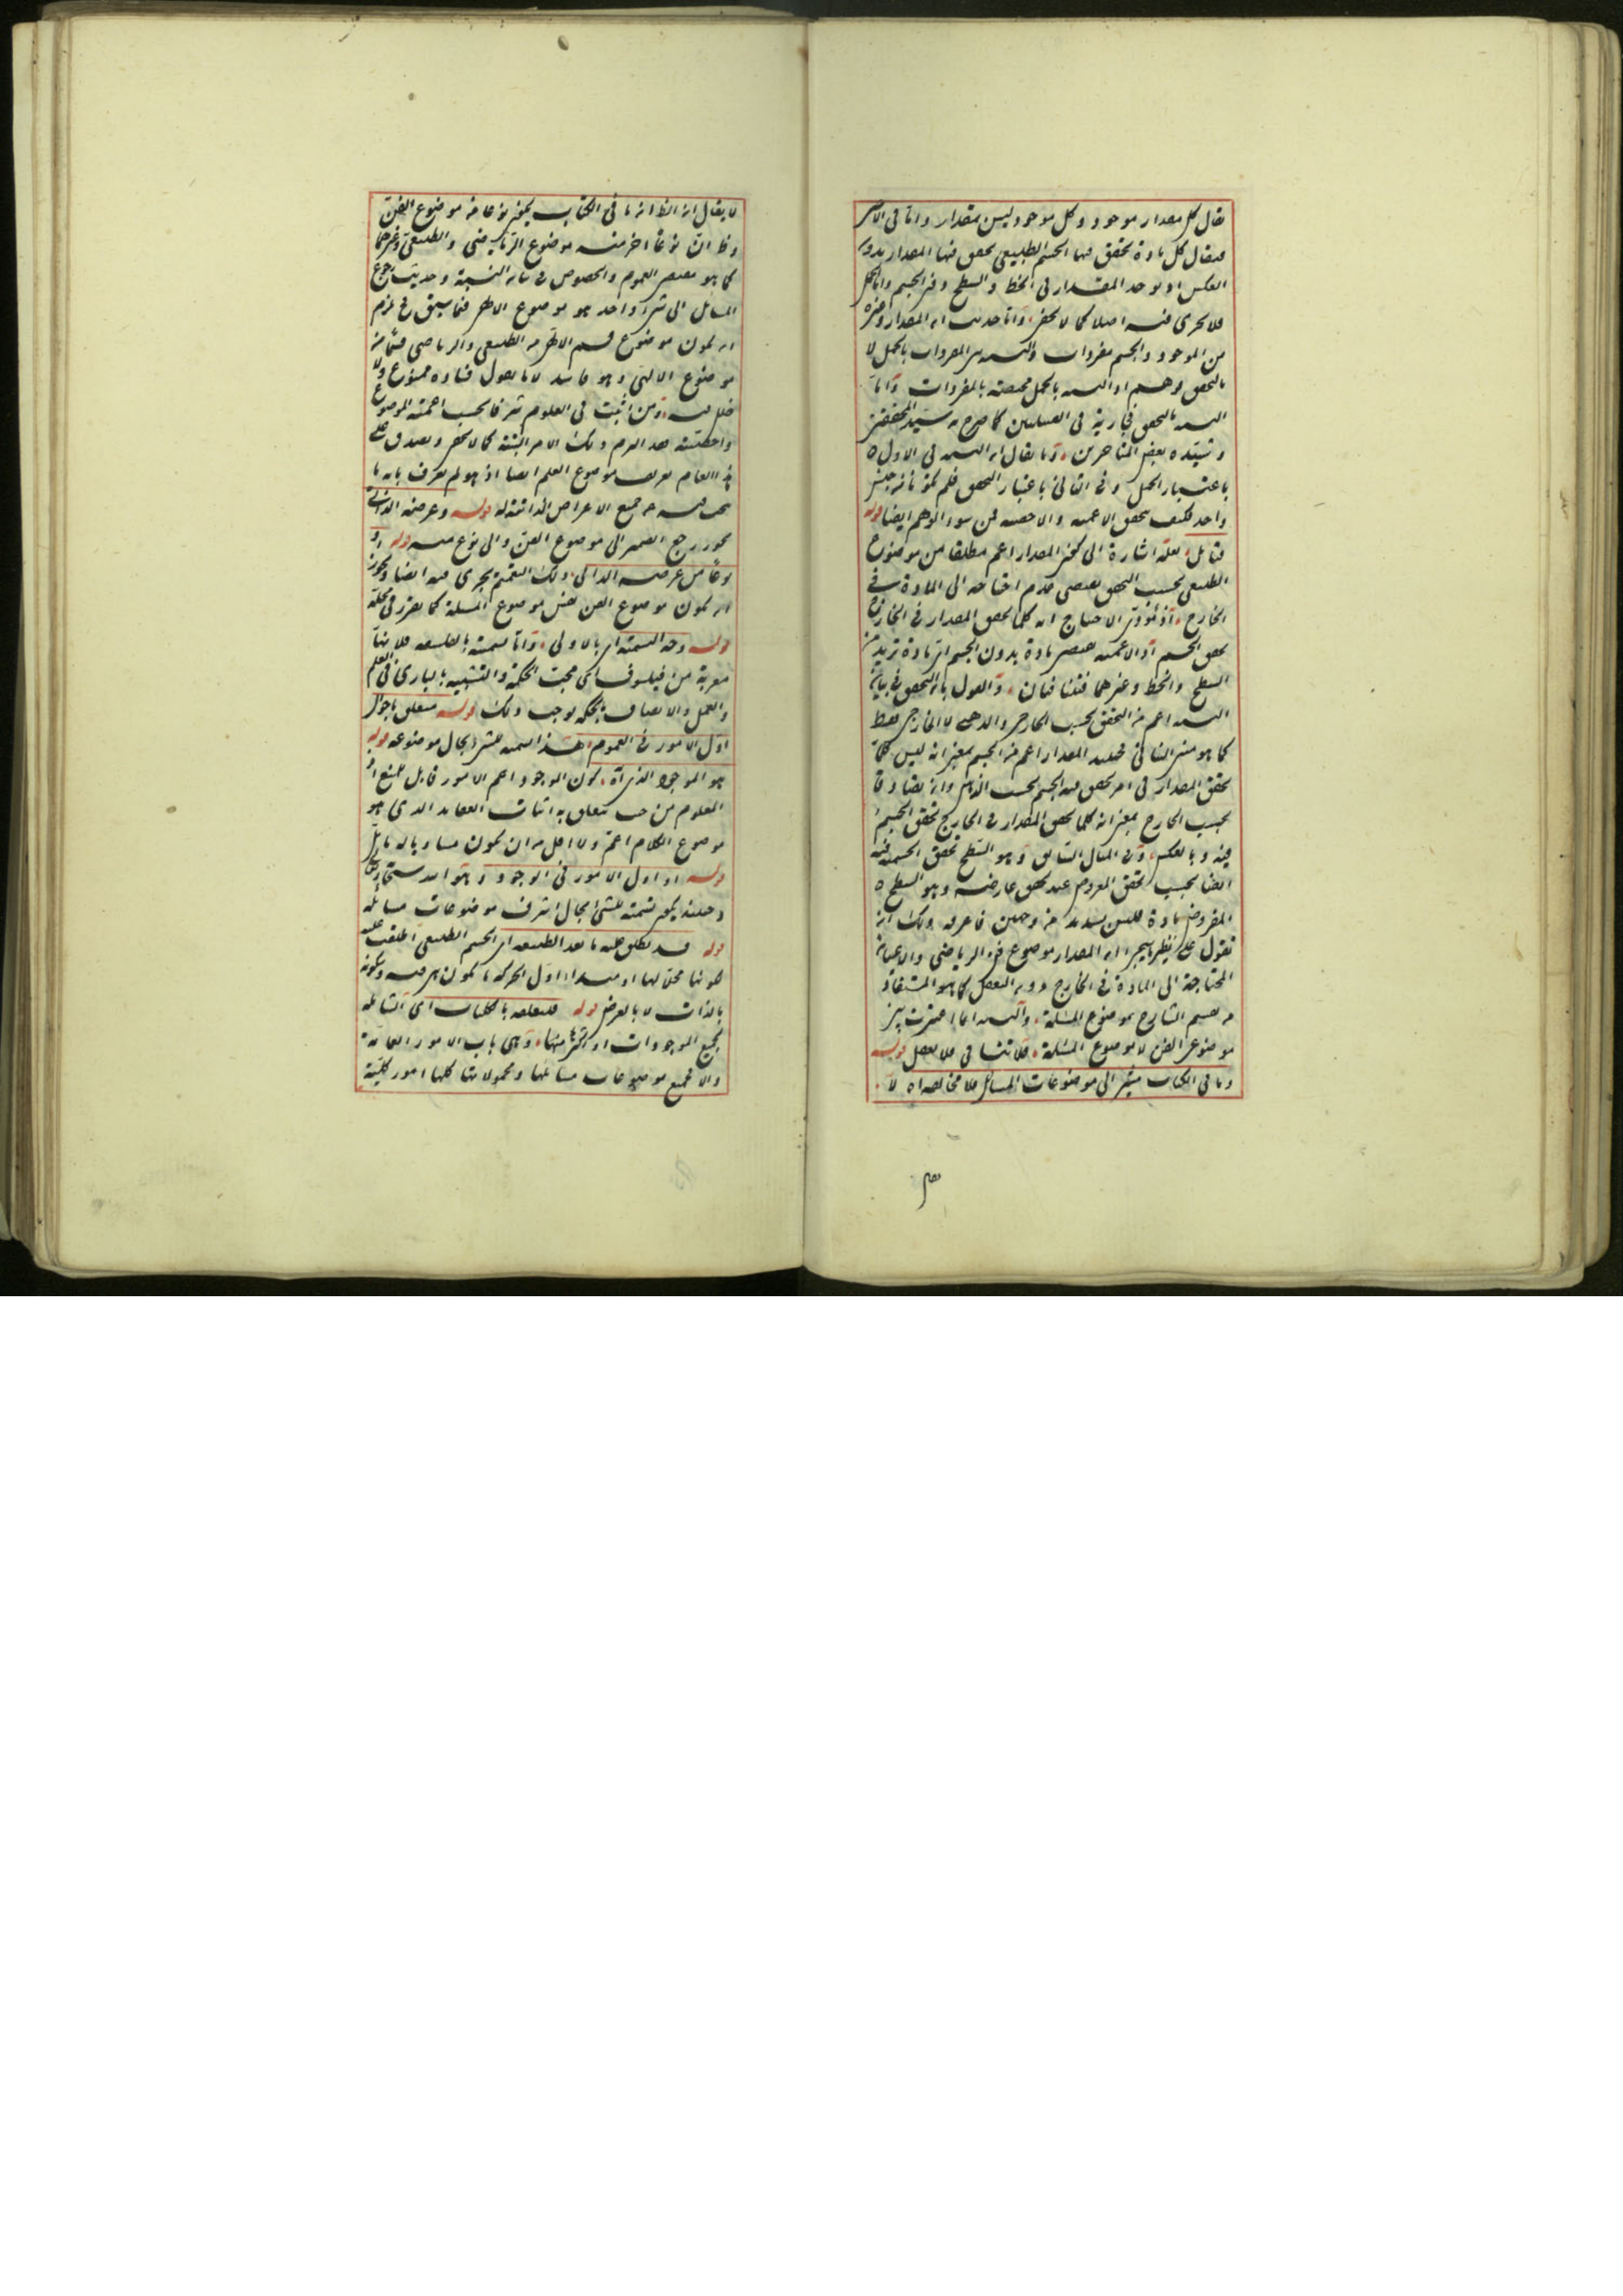 يقال كل مقدار موجود وكل موجود ليس بمقدار واما فى الامر
فيقال كل مادة تحقق فيها الجسم الطبيعى تحقق فيها المقدار بدون
العكس او يوجد المقدار فى الخط والسطح وفى الجسم واما الحمل
فلا يجرى فيه اصلا كما لا يخفى واما حديث ان المقدار وغيره
من الموجود والجسم مفردات والنسبة بين المفردات بالحمل لا
بالتحقق فوهم اذ النسبة بالحمل مختصة بالمفردات واما
النسبة بالتحقق فجارية فى القبيلتين كما صرح به سيد المحققين
وشيده بعض المتاخرين وما يقال ان النسبة فى الاول
باعتبار الحمل وفى الثانى باعتبار التحقق فلم يكونا من جنس
واحد فكيف يتحقق الاعمية والاخصية فمن سوء الوهم ايضا قوله
فتامل لعله اشارة الى كون المقدار اعم مطلقا من موضوع
الطبيعى بحسب التحقق يقتضى عدم احتياجه الى المادة فى
الخارج اذ مؤدى الاحتياج انه كلما تحقق المقدار فى الخارج
تحقق الجسم اذ الاعمية تقتضى مادة بدون الجسم اى مادة تريد من
السطح والخط وغيرهما فتنافيان والقول بان التحقق فى بيان
النسبة اعم من التحقق بحسب الخارجى والذهنى لا الخارجى فقط
كما هو مبنى التنافى فحينئذ المقدار اعم من الجسم بمعنى انه ليس كلما
تحقق المقدار فى امر تحقق فيه الجسم بحسب الذهن وان تصادقا
بحسب الخارج بمعنى انه كلما تحقق المقدار فى الخارج تحقق الجسم
فيه وبالعكس وفى المثال السابق وهو السطح تحقق الجسمية فيه
ايضا بحسب تحقق المعروض عند تحقق عارضه وهو السطح
المفروض مادة فليس بسديد من وجهين فاعرفه ولك ان
تقول على نظر سيجئ ان المقدار موضوع فن الرياضى والاعيان
المحتاجة الى المادة فى الخارج دون التعقل كما هو المستفاد
من تقسيم الشارح موضوع المسئلة والنسبة انما اعتبرت بين
موضوعى الفن لا موضوع المسئلة فلا تنافى فلا تغفل قوله
وما فى الكتاب مشير الى موضوعات المسائل فلا مخالفة اه لا
لا يقال ان الظ ان ما فى الكتاب يكون نوعا من موضوع الفن
وظ ان نوعا اخر منه موضوع الرياضى والطبيعى وغيرهما
كما هو مقتضى العموم والخصوص فى بيان النسبة وحديث رجوع
المسائل الى شئ واحد هو موضوع الالهى فيما سبق فح يلزم
ان يكون موضوع قسم الالهى من الطبيعى والرياضى قسما من
موضوع الالهى وهو فاسد لانا نقول فساده ممنوع ولا
خلل فيه ومن اثبت فى العلوم شرفا بحسب اعمية الموضوع
واخصيته فقد التزم ذلك الامر البتة كما لا يخفى ويصدق على
هذا العام تعريف موضوع العلم ايضا اذ هو لم يعرف بانه ما
يبحث فيه عن جميع الاعراض الذاتية له قوله وعرضه الذاتى
يجوز رجع الضمير الى موضوع الفن والى نوع منه قوله او
نوعا من عرضه الذاتى ذلك التعميم يجرى فيه ايضا ويجوز
ان يكون موضوع الفن نفس موضوع المسئلة كما تقرر فى محله
قوله وجه التسمية اى بالاولى واما تسميته بالفلسفة فلانها
معربة من فيلسوف اى محبت الحكمة والتشبيه بالبارى فى العلم
والعمل والاتصاف بالحكمة يوجب ذلك قوله متعلق باحوال
اول الامور فى العموم هذا تسمية للشئ بحال موضوعه قوله
هو الموجود الذى آه كون الموجود اعم الامور قابل للمنع اذ
المعلوم من حيث يتعلق به اثبات العقايد الذى هو
موضوع الكلام اعم ولا اقل من ان يكون مساويا له تامل
قوله او اول الامور فى الوجود وهو الله سبحانه وتعالى
وحينئذ يكون تسمية للشئ بحال اشرف موضوعات مسائله
قوله قد يطلق عليه ما بعد الطبيعة اى الجسم الطبيعى اطلقت عليه
لكونها محلا لها او مبدا اول لحركة ما تكون هى فيه وسكونه
بالذات لا بالعرض قوله لتعلقه بالكليات اى الشاملة
لجميع الموجودات او اكثرها منها وهى باب الامور العامة
والا فجميع موضوعات مسائلها ومحمولاتها كلها امور كلية